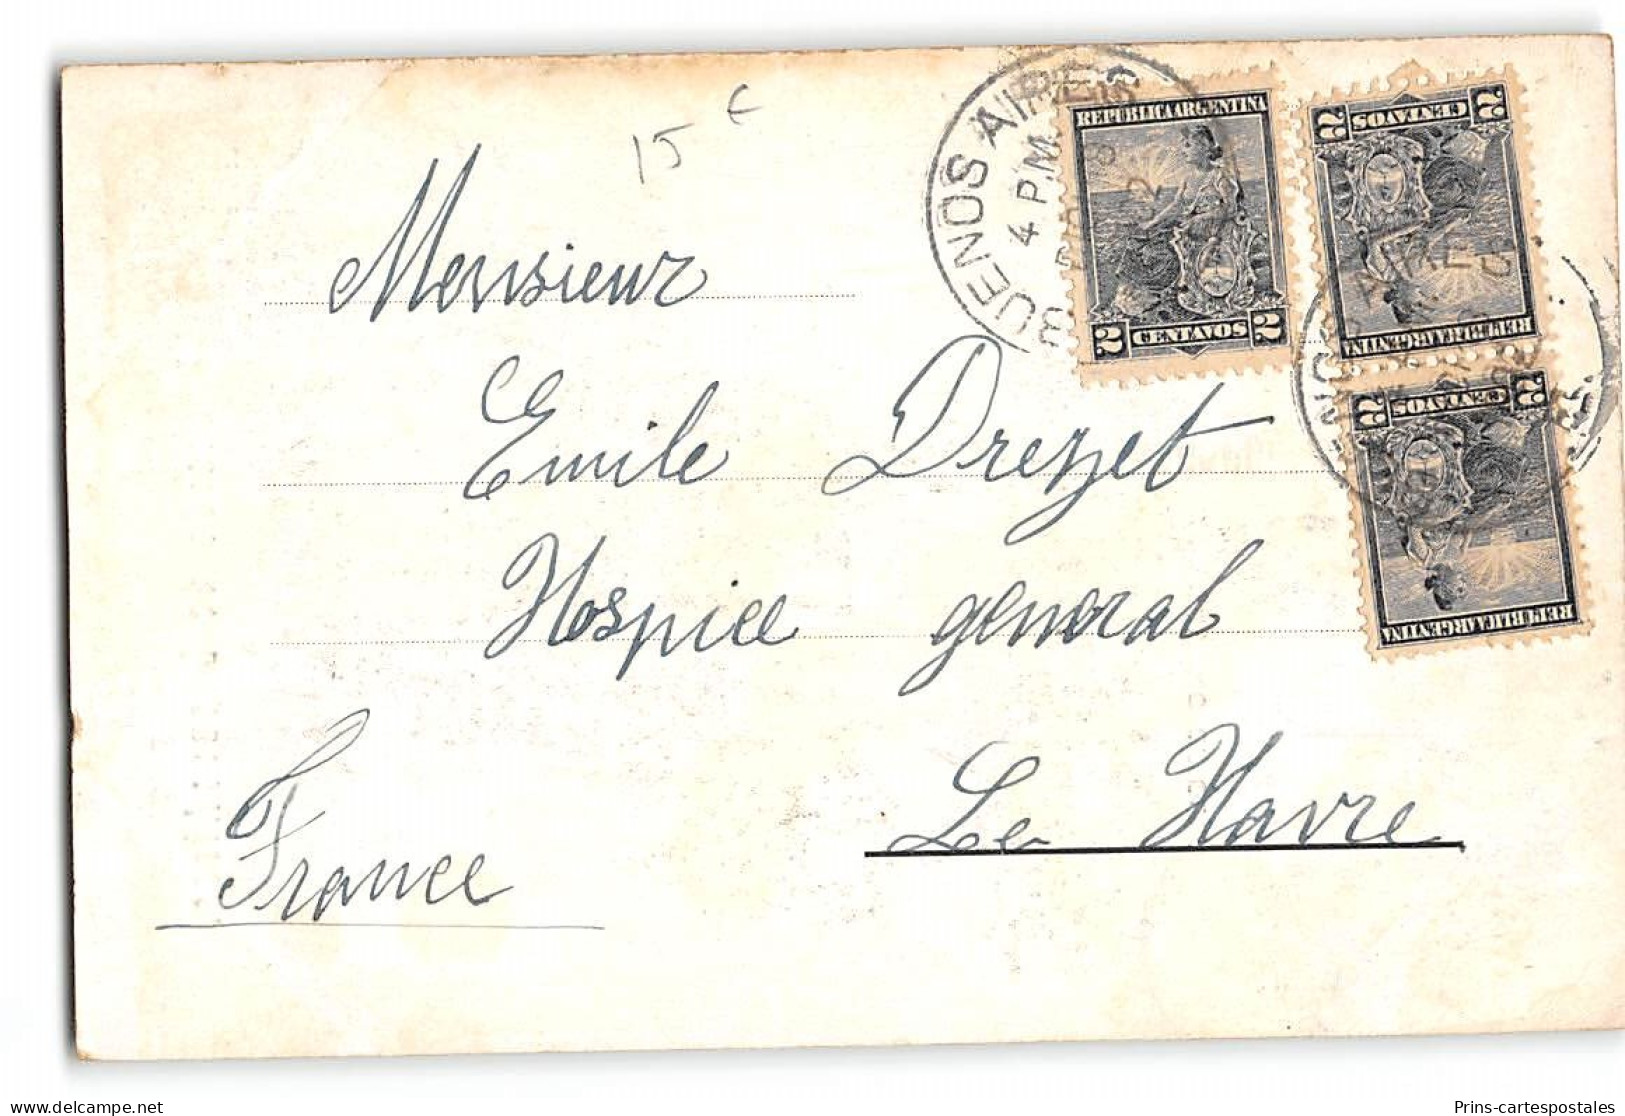 15 €
BUENOS AIRES
4 P.M.
REPUBLICA ARGENTINA
2 CENTAVOS 2
2 CENTAVOS 2
REPUBLICA ARGENTINA
2 CENTAVOS 2
REPUBLICA ARGENTINA
Monsieur
Emile Drezet
Hospice general
Le Havre
France
delcampe.net
Prins-cartespostales